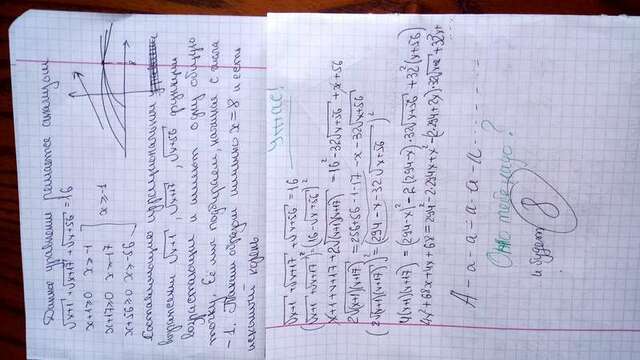 Данное уравнение решается анализом
√x+1 + √x+17 + √x+56 = 16
x+1≥0 x≥-1
x+17≥0 x≥-17 x≥-1
x+56≥0 x≥-56
Составляющие иррациональным
выражением √x+1, √x+17, √x+56 функции
возрастающие и имеют одну общую
точку. Её мы подбираем начиная с числа
-1. Таким образом число x=8 и есть
искомый корень
Ужас!
√x+1 + √x+17 + √x+56 = 16
(√x+1 + √x+17)² = (16-√x+56)²
x+1+x+17+2√(x+1)(x+17) = 16²-32√x+56 + x+56
2√(x+1)(x+17) = 256+56-1-17-x-32√x+56
(2√(x+1)(x+17))² = (294-x-32√x+56)²
4(x+1)(x+17) = (294-x)²-2(294-x)·32√x+56+32²(x+56)
4x²+68x+4x+68=294²-2·294x+x²-(294+2x)·32√x+56+32²x+...
А-а-а-а-а-а-а-.......
Это тебе надо?
и будет 8